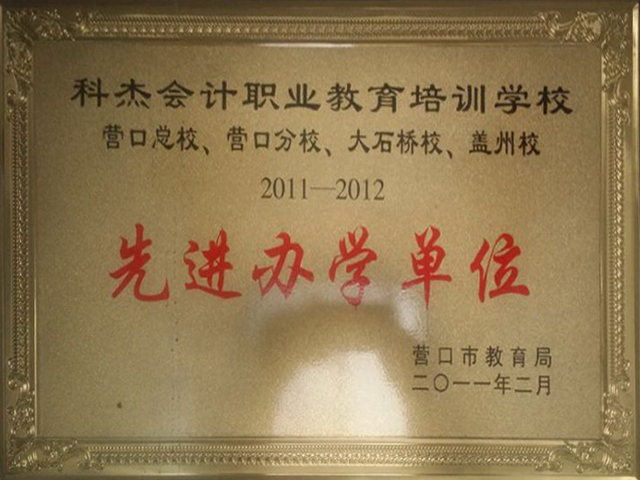 科杰会计职业教育培训学校
营口总校、营口分校、大石桥校、盖州校
2011—2012
先进办学单位
营口市教育局
二〇一一年二月